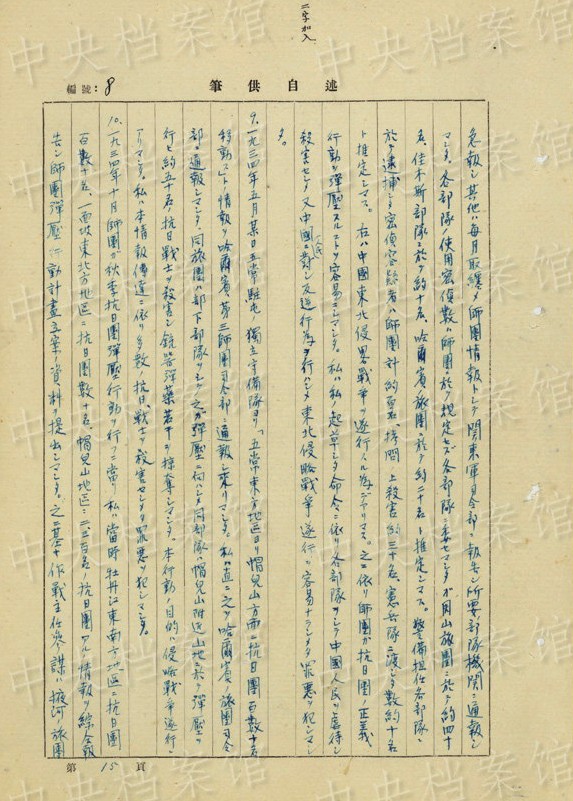 二字加入
編號：8
筆供自述
急報シ其他ハ毎月取纏メ師團情報トシテ関東軍司令部ニ報告シ所要部隊機関ニ通報シ
マシタ。各部隊ノ使用密偵数ハ師團ニ於テ規定セズ各部隊ニ委セマシタガ 旅團ニ於テ約四十
名、佳木斯部隊ニ於テ約十名、哈爾賓ノ旅團ニ於テ約二十名ト推定シマス。警備担任各部隊ニ
於テ逮捕シタ密偵容疑者ハ師團計約 拷問ノ上殺害約三十名憲兵隊ニ渡シタ数約十名
ト推定シマス。右ハ中國東北侵畧戦争ヲ遂行スル為デアリマス。之ニ依リ師團ガ抗日團ノ正義
行動ヲ弾壓スルコトヲ容易ニシマシタ。私ハ私ノ起草シタ命令ニ依リ各部隊ヲシテ中國人民ヲ虐待シ
殺害セシメ又中國人民ニ對シ反逆行為ヲ行ハシメ東北侵略戦争ノ遂行ヲ容易ナラシメタ罪悪ヲ犯シマシ
タ。
9.一九三四年五月某日五常駐屯ノ獨立守備隊ヨリ、五常東方地区ヨリ帽兒山方面ニ抗日團百数十名
移動シタトノ情報ヲ哈爾賓ノ第三師團司令部ニ通報シ来リマシタ。私ハ直ニ之ヲ哈爾賓ノ旅團司令
部ニ通報シマシタ。同旅團ハ部下部隊ヲシテ之ガ弾壓ニ向ハシメ同部隊ハ帽兒山附近山地ニ於テ弾壓ヲ
行ヒ約五十名ノ抗日戦士ヲ殺害シ銃器弾薬若干ヲ掠奪シマシタ。本行動ノ目的ハ侵略戦争遂行ニ
アリマシタ。私ハ本情報傳達ニ依リ多数ノ抗日戦士ヲ殺害セシメタ罪悪ヲ犯シマシタ。
10.一九三四年十月師團ガ秋季抗日團弾壓行動ヲ行フニ當リ私ハ當時牡丹江東南方地区ニ抗日團
百数十名、一面坡東北方地区ニ抗日團数十名、帽兒山地区ニ二三百名ノ抗日團アル情報ヲ綜合報
告シ師團弾壓行動計畫立案ノ資料ヲ提出シマシタ。之ニ基キ作戦主任参謀ハ掖河ノ旅團
第15頁
中央档案馆